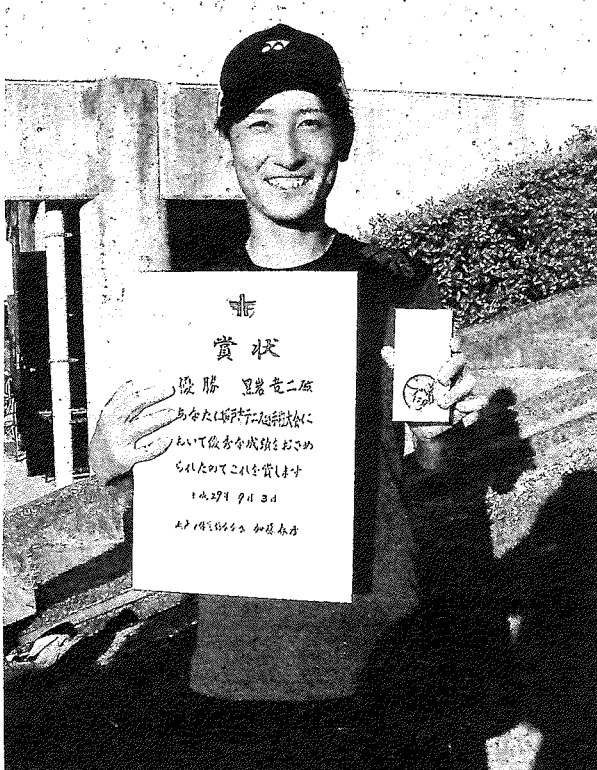 賞状
優勝 黒岩竜二殿
あなたは坂戸市テニス選手権大会に
おいて優秀な成績をおさめ
られたのでこれを賞します
平成29年9月3日